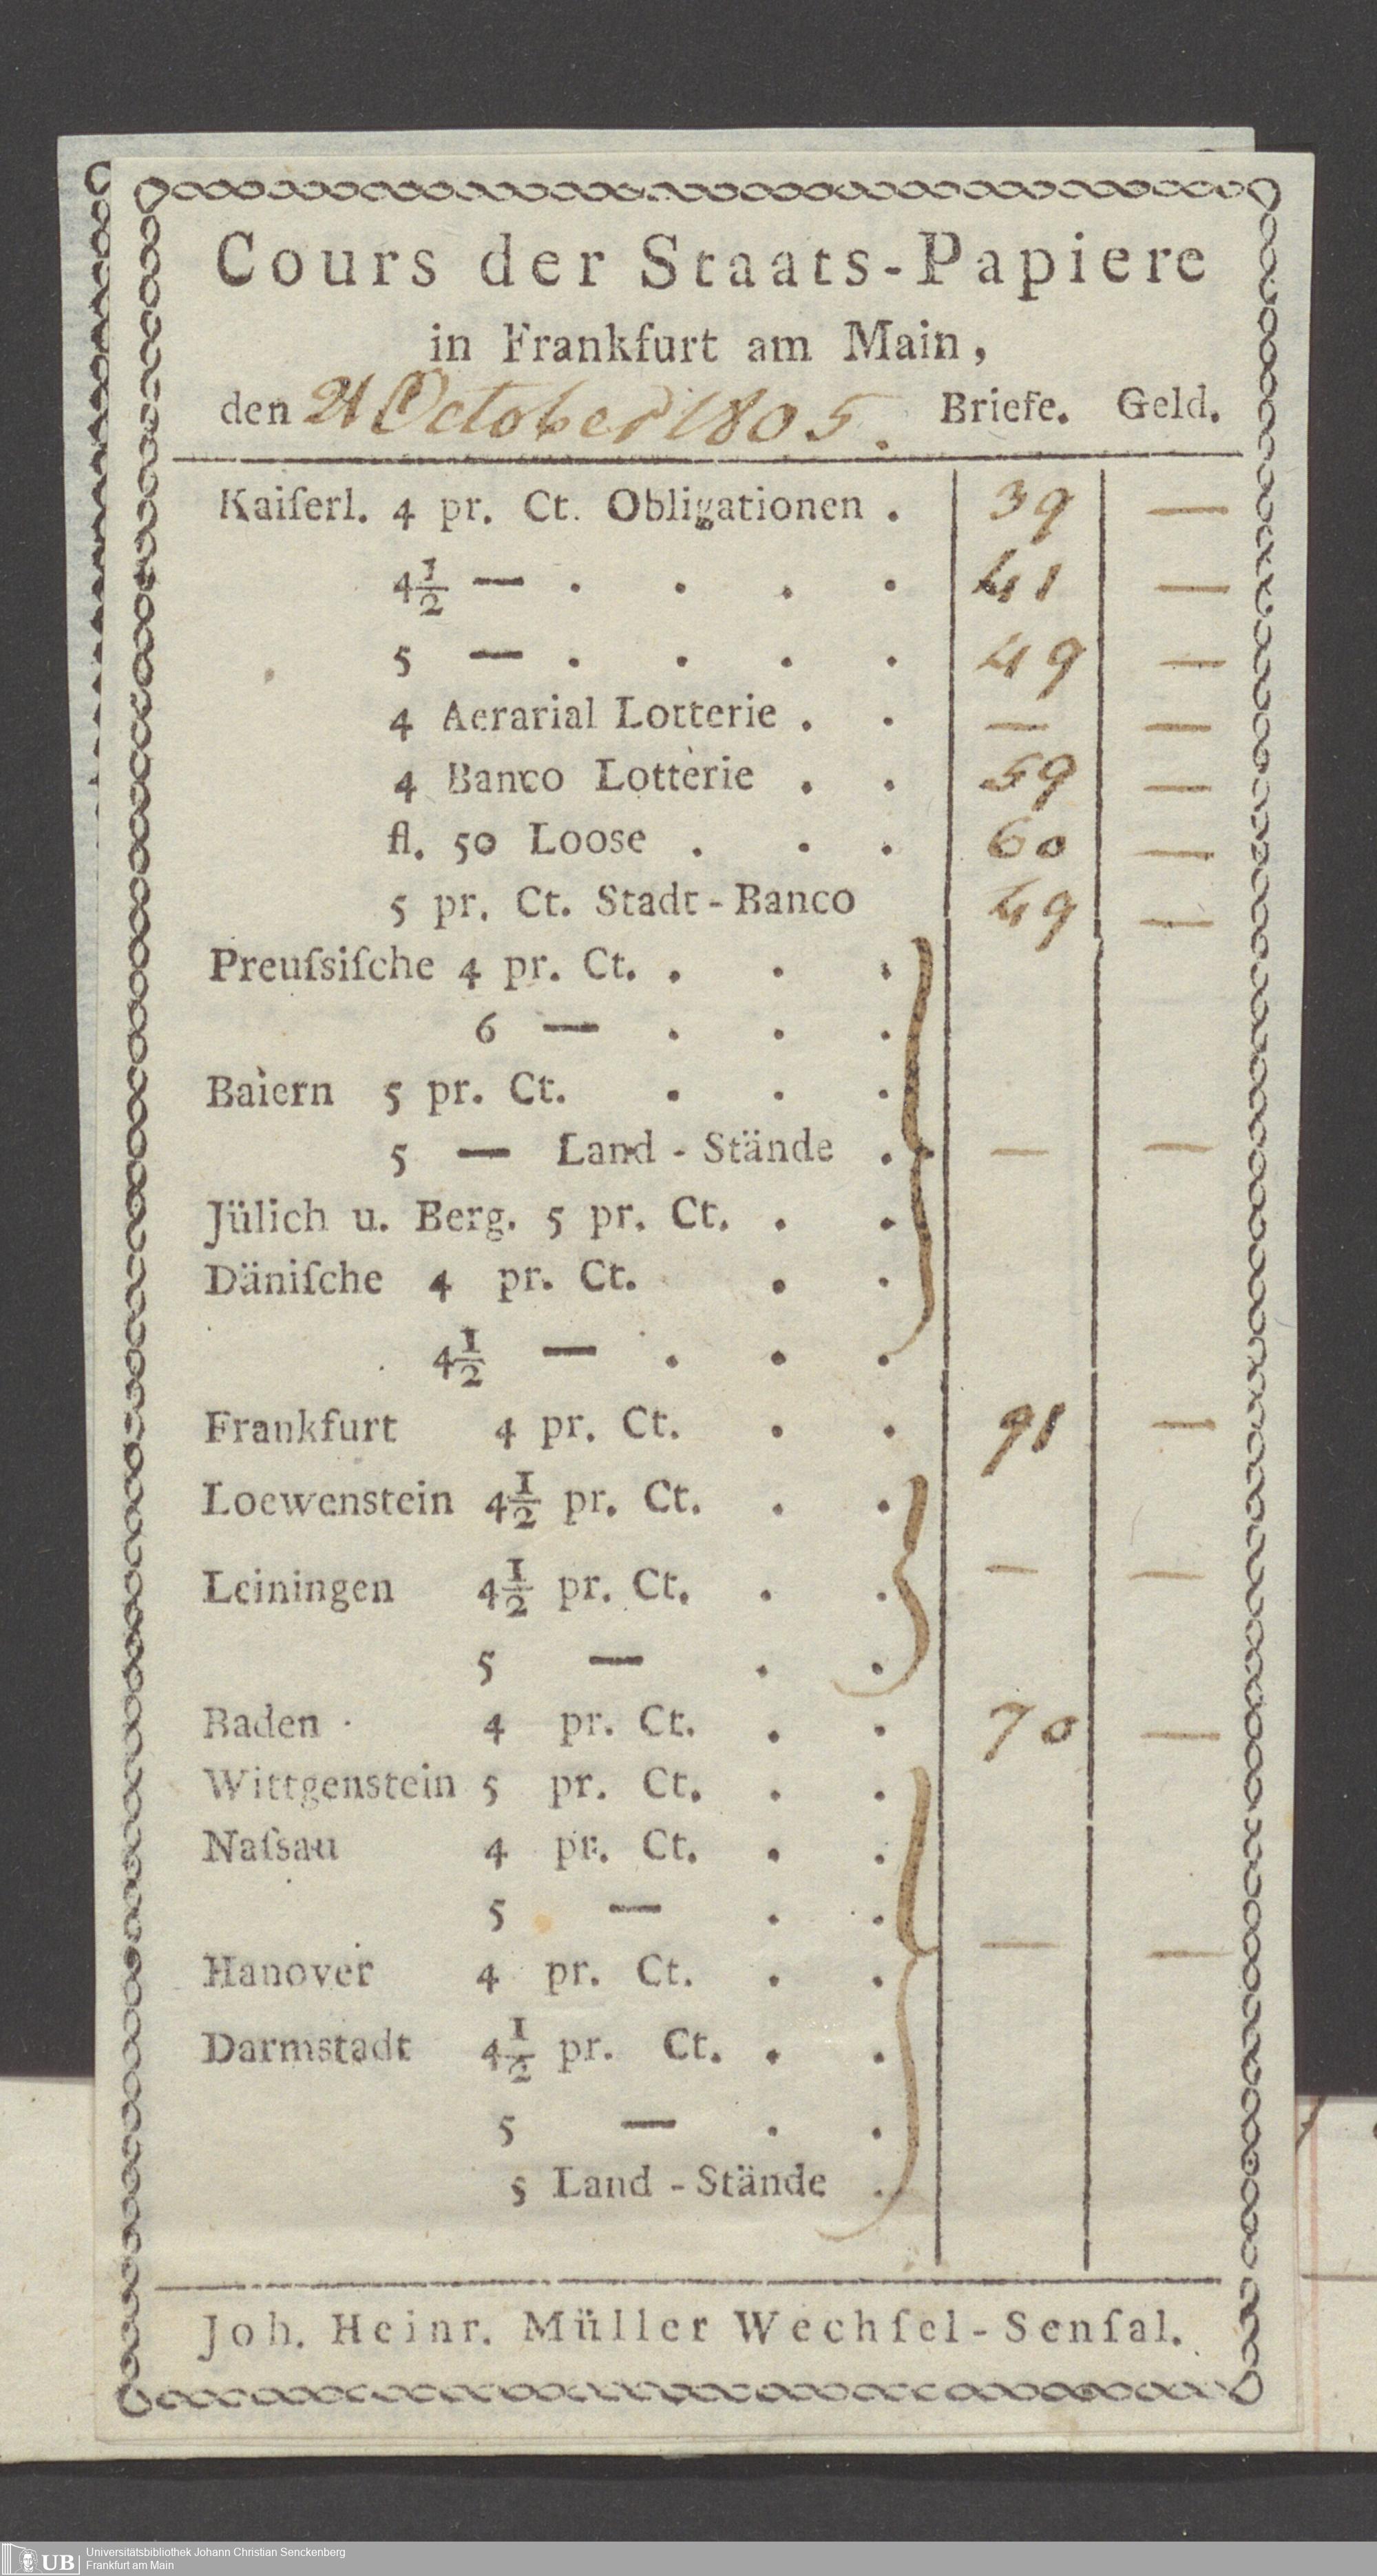 Cours der Staats-Papiere
in Frankfurt am Main,
den 21 October 1805. Briefe. Geld.
Kaiſerl. 4 pr. Ct. Obligationen . 39 —
4½ — . . . . 41 —
5 — . . . . 49 —
4 Aerarial Lotterie . . — —
4 Banco Lotterie . . 59 —
fl. 50 Loose . . . 60 —
5 pr. Ct. Stadt-Banco 49 —
Preuſsiſche 4 pr. Ct. . . .
6 — . . .
Baiern 5 pr. Ct. . . .
5 — Land-Stände . — —
Jülich u. Berg. 5 pr. Ct. . .
Däniſche 4 pr. Ct. . .
4½ — . . .
Frankfurt 4 pr. Ct. . . 91 —
Loewenstein 4½ pr. Ct. . .
Leiningen 4½ pr. Ct. . . — —
5 — . .
Baden 4 pr. Ct. . . 70 —
Wittgenstein 5 pr. Ct. . .
Naſsau 4 pr. Ct. . .
5 — . .
Hanover 4 pr. Ct. . . — —
Darmstadt 4½ pr. Ct. . .
5 — . .
5 Land-Stände .
Joh. Heinr. Müller Wechſel-Senſal.
UB Universitätsbibliothek Johann Christian Senckenberg
Frankfurt am Main